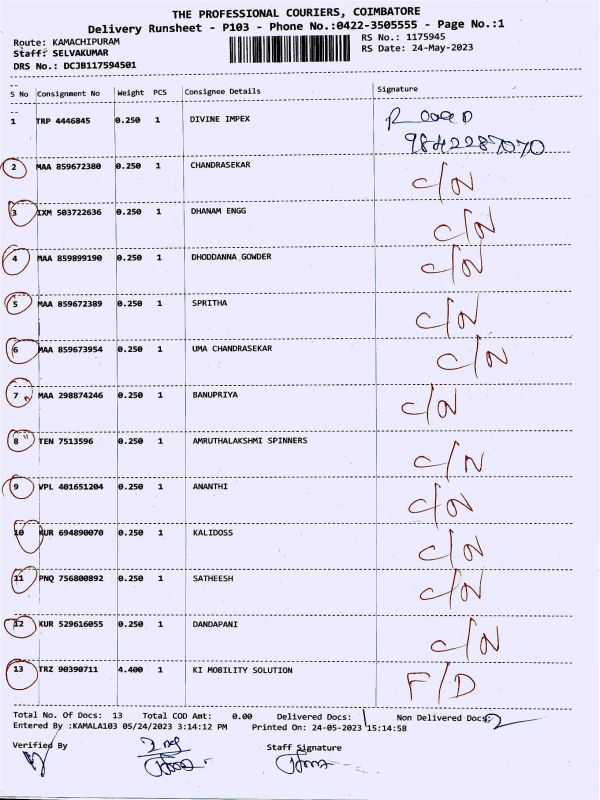 THE PROFESSIONAL COURIERS, COIMBATORE
Delivery Runsheet - P103 - Phone No.:0422-3505555 - Page No.:1
Route: KAMACHIPURAM RS No.: 1175945
Staff: SELVAKUMAR RS Date: 24-May-2023
DRS No.: DCJB117594501
S No Consignment No Weight PCS Consignee Details Signature
1 TRP 4446845 0.250 1 DIVINE IMPEX
9842287070
2 MAA 859672380 0.250 1 CHANDRASEKAR C/N
3 IXM 503722636 0.250 1 DHANAM ENGG C/N
4 MAA 859899190 0.250 1 DHODDANNA GOWDER C/N
5 MAA 859672389 0.250 1 SPRITHA C/N
6 MAA 859673954 0.250 1 UMA CHANDRASEKAR C/N
7 MAA 298874246 0.250 1 BANUPRIYA C/N
8 TEN 7513596 0.250 1 AMRUTHALAKSHMI SPINNERS C/N
9 VPL 401651204 0.250 1 ANANTHI C/N
10 KUR 694890070 0.250 1 KALIDOSS C/N
11 PNQ 756800892 0.250 1 SATHEESH C/N
12 KUR 529616055 0.250 1 DANDAPANI C/N
13 TRZ 90390711 4.400 1 KI MOBILITY SOLUTION F/D
Total No. Of Docs: 13 Total COD Amt: 0.00 Delivered Docs: 1 Non Delivered Docs:
Entered By :KAMALA103 05/24/2023 3:14:12 PM Printed On: 24-05-2023 15:14:58
Verified By Staff Signature